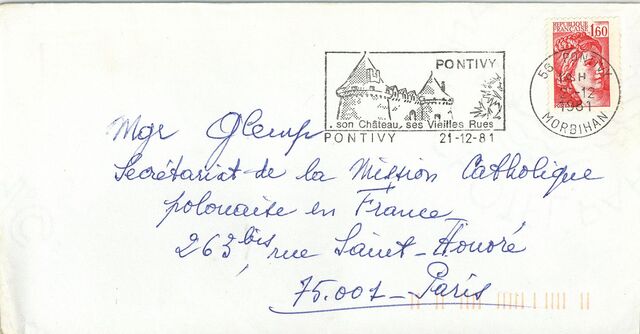 RÉPUBLIQUE FRANÇAISE
1,60
PONTIVY
son Château, ses Vieilles Rues
PONTIVY 21-12-81
56 PONTIVY
18 H
21-12
1981
MORBIHAN
Mgr Glemp
Secrétariat de la Mission Catholique
polonaise en France
263 bis rue Saint-Honoré
75.001 - Paris